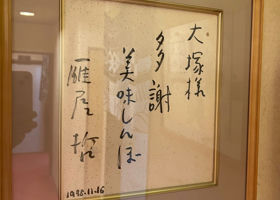 大塚様
多謝
美味しんぼ
雁屋哲
1998.11.16